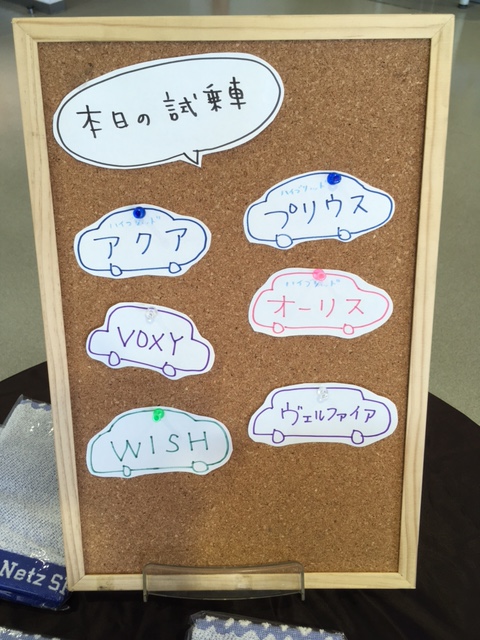 本日の試乗車
ハイブリッド
アクア
ハイブリッド
プリウス
VOXY
ハイブリッド
オーリス
WISH
ヴェルファイア
Netz